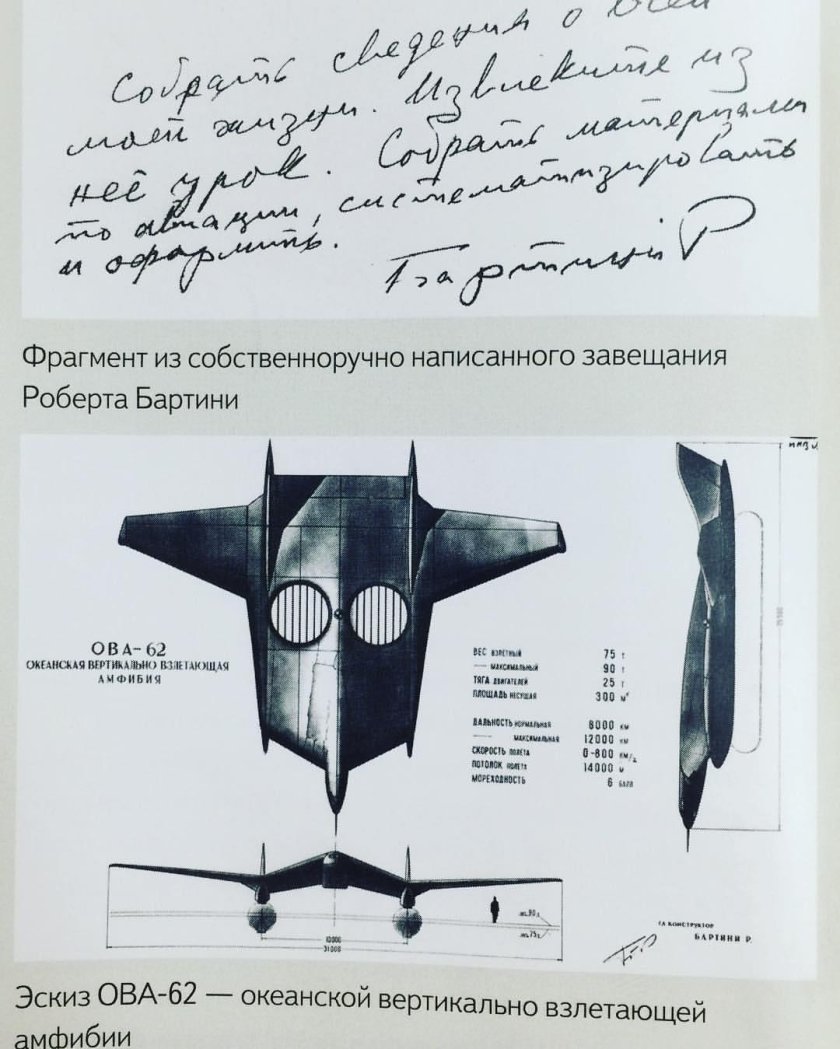 Собрать сведения о всей
моей жизни. Извлеките из
неё урок. Собрать материалы
по авиации, систематизировать
и оформить.
Бартини Р
Фрагмент из собственноручно написанного завещания
Роберта Бартини
ОВА-62
ОКЕАНСКАЯ ВЕРТИКАЛЬНО ВЗЛЕТАЮЩАЯ
АМФИБИЯ
ВЕС ВЗЛЕТНЫЙ 75 т
— МАКСИМАЛЬНЫЙ 90 т
ТЯГА ДВИГАТЕЛЕЙ 25 т
ПЛОЩАДЬ НЕСУЩАЯ 300 м²
ДАЛЬНОСТЬ НОРМАЛЬНАЯ 8000 км
— МАКСИМАЛЬНАЯ 12000 км
СКОРОСТЬ ПОЛЕТА 0-800 км/ч
ПОТОЛОК ПОЛЕТА 14000 м
МОРЕХОДНОСТЬ 6 БАЛЛ
10000
31000
ГЛ КОНСТРУКТОР
БАРТИНИ Р.
Эскиз ОВА-62 — океанской вертикально взлетающей
амфибии